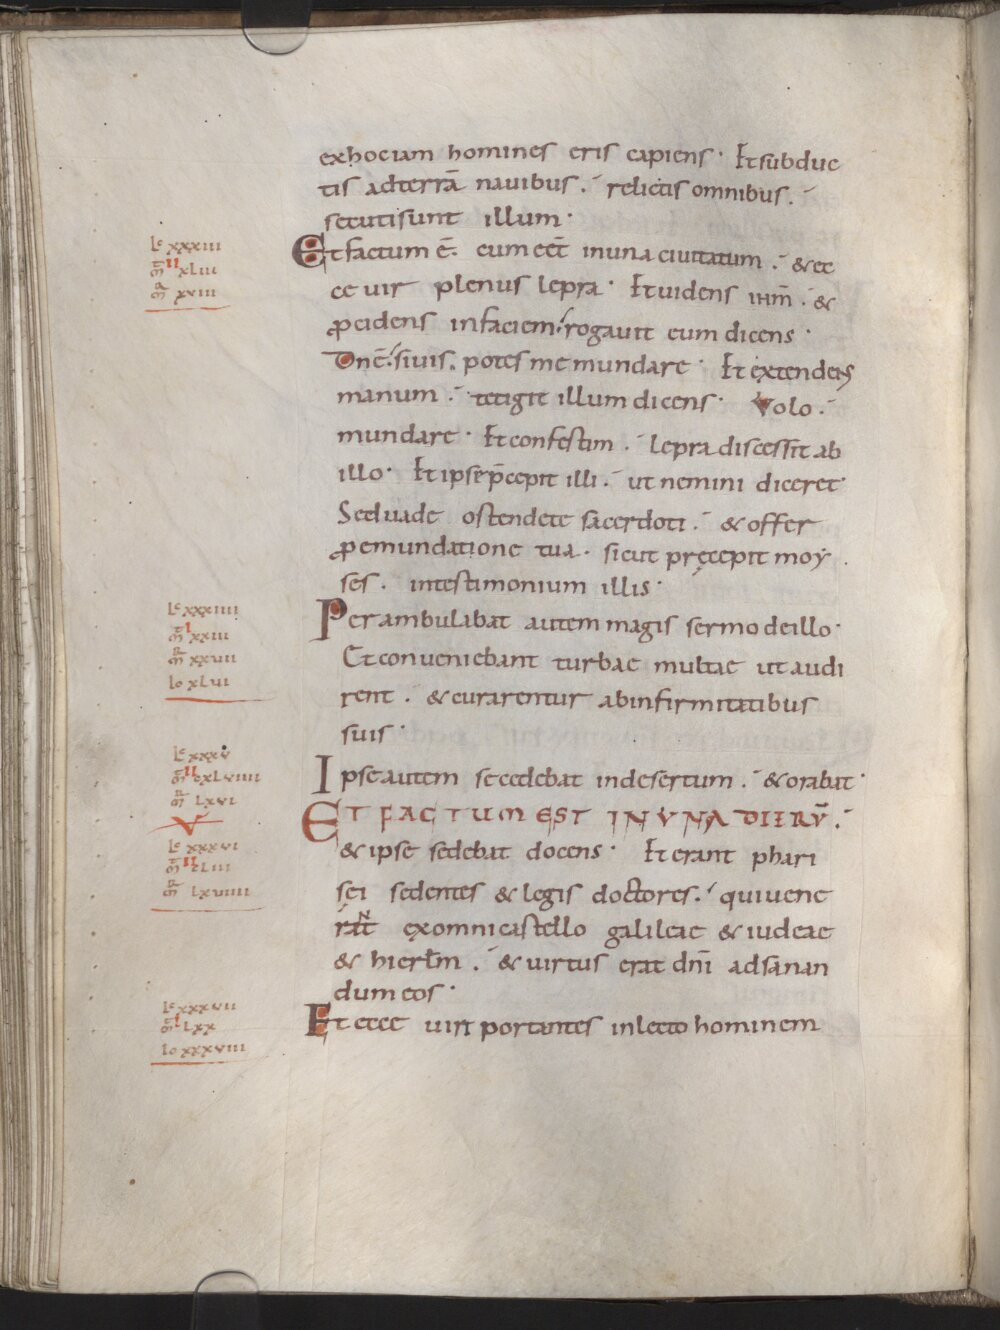 exhociam homines eris capiens· Etsubduc
tis adterrā nauibus. relictis omnibus.
secutisunt illum·
Lc xxxiii
Et factum ē. cum eēt inuna ciuitatum. & ec
mt II xLiii
mr xviii
ce uir plenus lepra· Et uidens ihm̄. &
procidens infaciem rogauit eum dicens·
Dn̄e. siuis. potes me mundare· Et extendens
manum. tetigit illum dicens· Volo.
mundare· Et confestim. lepra discessit ab
illo· Et ipse p̄cepit illi. ut nemini diceret·
Sed uade ostende te sacerdoti. & offer
pro emundatione tua· sicut pręcepit moy
ses. intestimonium illis·
Lc xxxiiii
Perambulabat autem magis sermo deillo·
mt I xxiii
mr xxvii
Io xLvi
Et conueniebant turbae multae ut audi
rent. & curarentur abinfirmitatibus
suis·
Lc xxxv
mt II cxLviiii
mr Lxvi
Ipse autem secedebat indesertum. & orabat·
ET FACTUM EST IN UNA DIERŪ.
Lc xxxvi
mt II cLiii
& ipse sedebat docens· Et erant phari
mr Lxviiii
sei sedentes & legis doctores. qui uene
rant ex omni castello galileae & iudeae
& hierl̄m. & uirtus erat dn̄i adsanan
dum eos·
Lc xxxvii
mt I Lxx
Et ecce uiri portantes inlecto hominem
Io xxxviii